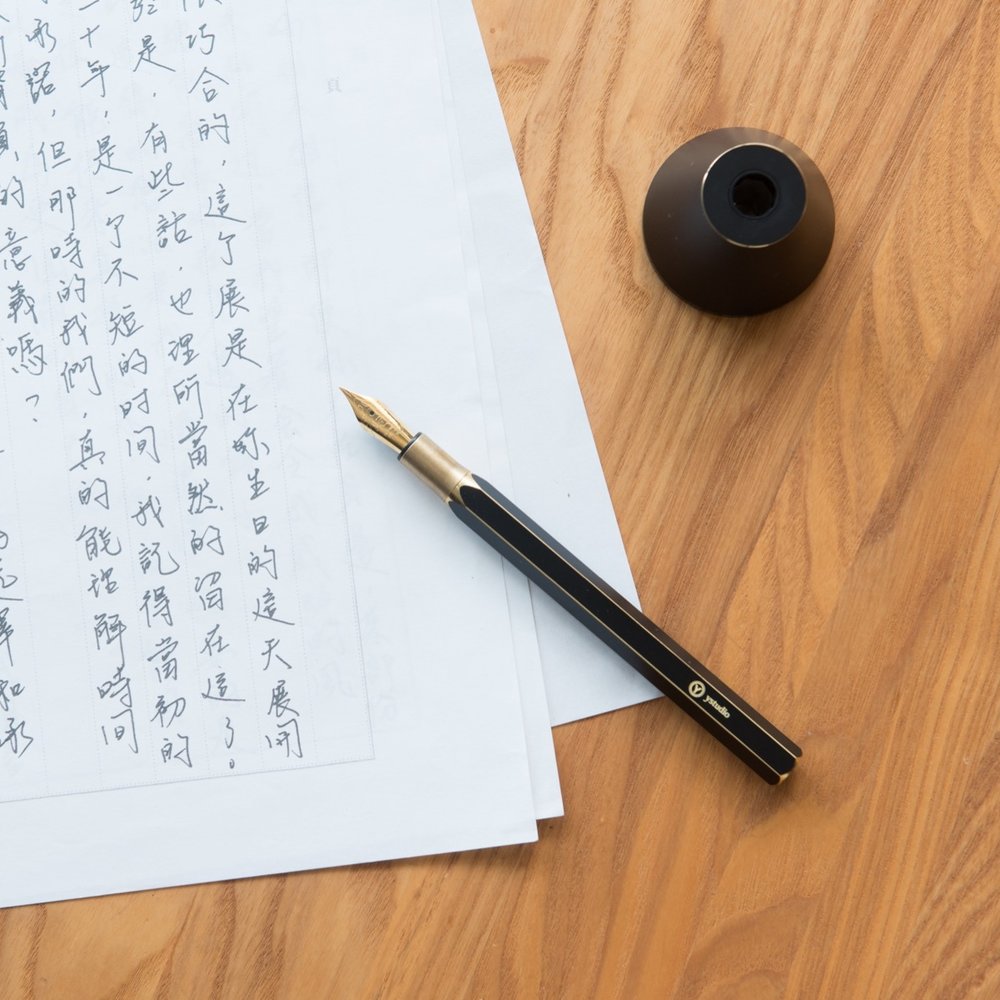 很巧合的，這個展是在你生日的這天展開
於是，有些話，也理所當然的留在這了。
二十年，是一个不短的时间，我記得當初的
承諾，但那時的我們，真的能理解時间
的意義嗎？
選擇和承
頁
ystudio